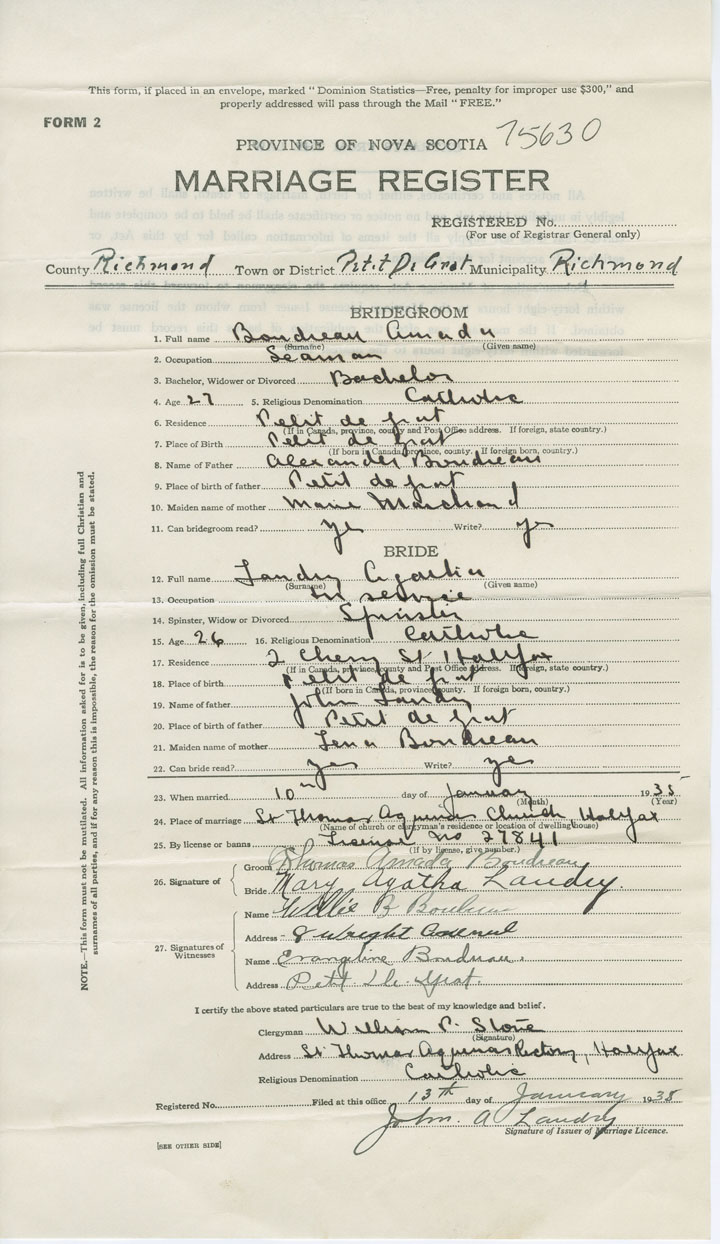 This form, if placed in an envelope, marked "Dominion Statistics—Free, penalty for improper use $300," and
properly addressed will pass through the Mail "FREE."
FORM 2
PROVINCE OF NOVA SCOTIA 75630
MARRIAGE REGISTER
REGISTERED No.
(For use of Registrar General only)
County Richmond Town or District Petit De Grat Municipality Richmond
BRIDEGROOM
1. Full name Boudreau Amada
(Surname) (Given name)
2. Occupation Seaman
3. Bachelor, Widower or Divorced Bachelor
4. Age 27 5. Religious Denomination Catholic
6. Residence Petit de grat
(If in Canada, province, county and Post Office address. If foreign, state country.)
7. Place of Birth Petit de grat
(If born in Canada, province, county. If foreign born, country.)
8. Name of Father Alexander Boudreau
9. Place of birth of father Petit de grat
10. Maiden name of mother Marie Marchand
11. Can bridegroom read? yes Write? yes
BRIDE
12. Full name Landry Agatha
(Surname) (Given name)
13. Occupation In service
14. Spinster, Widow or Divorced Spinster
15. Age 26 16. Religious Denomination Catholic
17. Residence 2 Cherry St Halifax
(If in Canada, province, county and Post Office Address. If foreign, state country.)
18. Place of birth Petit de grat
(If born in Canada, province, county. If foreign born, country.)
19. Name of father John Landry
20. Place of birth of father Petit de grat
21. Maiden name of mother Lena Boudreau
22. Can bride read? yes Write? yes
23. When married 10th day of January 1935
(Month) (Year)
24. Place of marriage St Thomas Aquinas Church, Halifax
(Name of church or clergyman's residence or location of dwelling house)
25. By license or banns License No 27841
(If by license, give number.)
26. Signature of
Groom Thomas Amada Boudreau
Bride Mary Agatha Landry.
27. Signatures of Witnesses
Name Willie B
Address - 8 Wright Avenue
Name Evangeline Boudreau.
Address Petit De Grat.
I certify the above stated particulars are true to the best of my knowledge and belief.
Clergyman William P. Stone
(Signature)
Address St Thomas Aquinas Rectory, Halifax
Religious Denomination Catholic
Registered No. Filed at this office 13th day of January 1935
John. A Landry
Signature of Issuer of Marriage Licence.
[SEE OTHER SIDE]
NOTE.—This form must not be mutilated. All information asked for is to be given, including full Christian and
surnames of all parties, and if for any reason this is impossible, the reason for the omission must be stated.